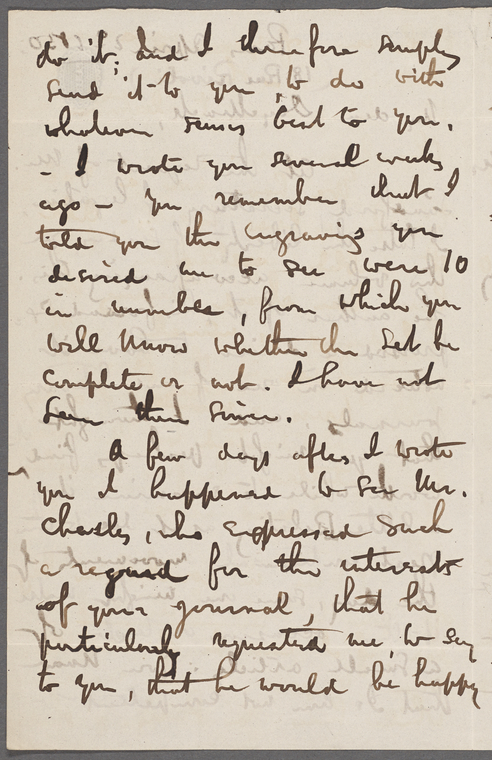 do it; and I therefore simply
send it to you, to do with
whatever seems best to you.
- I wrote you several weeks
ago - you remember that I
told you the engravings you
desired me to see were 10
in number, from which you
will know whether the set be
complete or not. I have not
seen them since.
A few days after I wrote
you I happened to see Mr.
Chasles, who expressed such
a regard for the interests
of your journal, that he
particularly requested me, to say
to you, that he would be happy